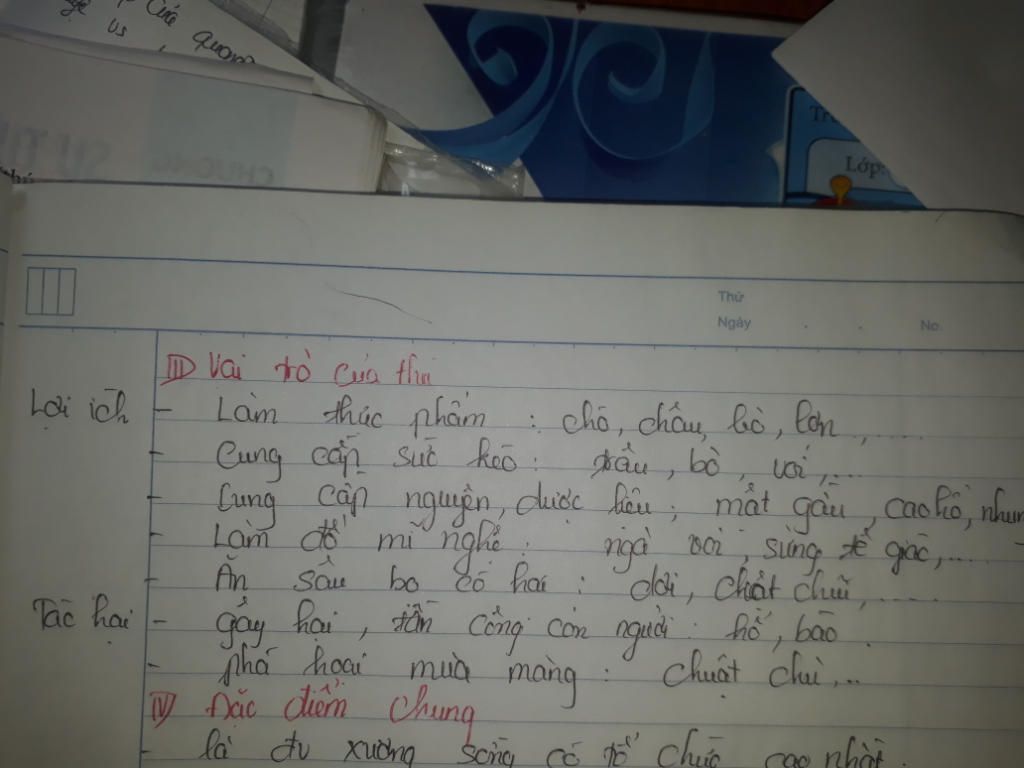 Của quang
us
CHƯƠNG
Lớp:
Thứ
Ngày . . No.
III) Vai trò của thú
Lợi ích - Làm thức phẩm : chó, châu, bò, lợn,....
- Cung cấp sức kéo : trâu, bò, voi,...
- Cung cấp nguyện, dược liệu ; mật gấu, cao hổ, nhun
- Làm đồ mĩ nghệ : ngà voi, sừng tê giác,...
- Ăn sâu bọ có hại : dơi, chuột chũi,.....
Tác hại - gây hại, tấn công con người : hổ, báo.
- phá hoại mùa màng : chuột chù,..
IV) Đặc điểm chung
- là đv xương sống có tổ chức cao nhất.